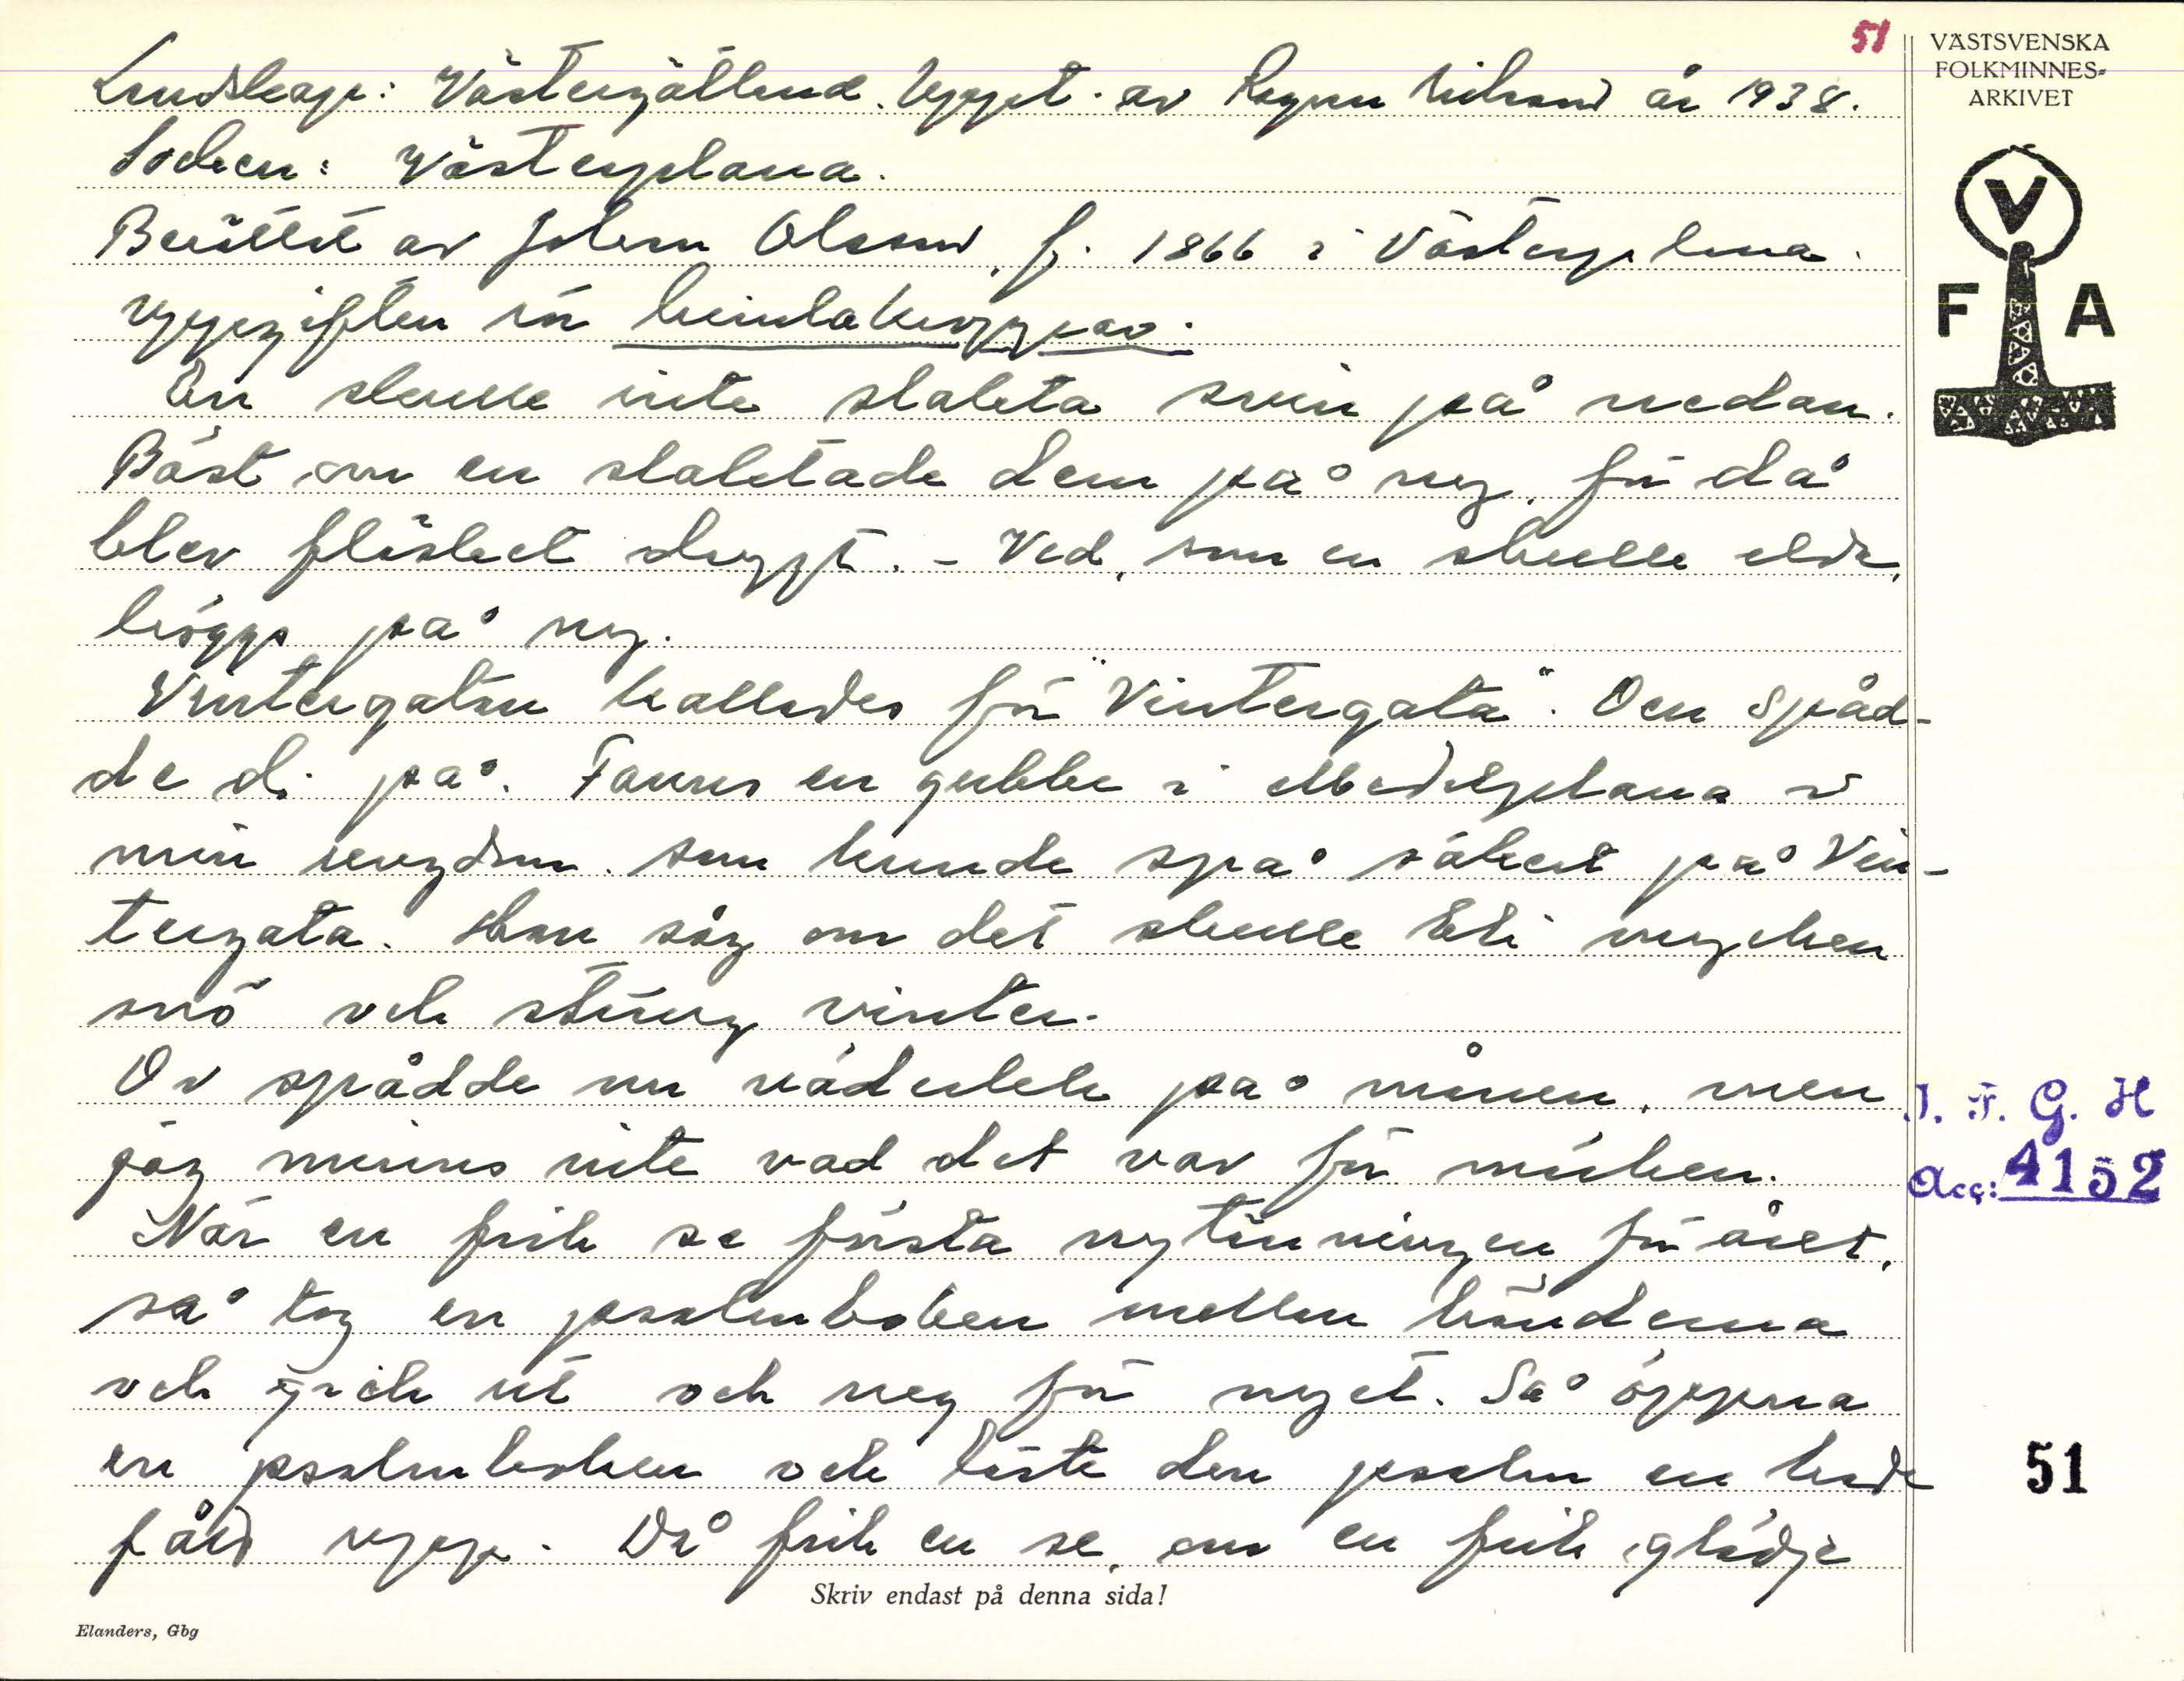 51
VÄSTSVENSKA
FOLKMINNES-
ARKIVET
Landskap: Västergötland. Uppt. av Ragnar Nilsson år 1938.
Socken: Västerplana.
Berättat av Johan Olsson, f. 1866 i Västerplana.
Uppgiften in
En skulle inte slakta svin på nedan.
Bäst om en slaktade dem på ny, för då
blev fläsket drygt. - Ved, som en skulle elda,
höggs på ny.
Vintergatan kallades för "Vintergata". Den spåd-
de di på. Fanns en gubbe i Medelplana i
min ungdom, som kunde spå säkert på Vin-
tergata. Han såg om det skulle bli mycken
snö och sträng vinter.
Di spådde nu väderlek på månen, men
jag minns inte vad det var för märken.
När en fick se första nytänningen för året,
så tog en psalmboken mellan händerna
och gick ut och neg för nyet. Så öppna
en psalmboken och läste den psalm en hade
fått upp. Då fick en se, om en fick glädje
Skriv endast på denna sida!
Elanders, Gbg
V
F A
I. F. G. H
Acc: 4152
51